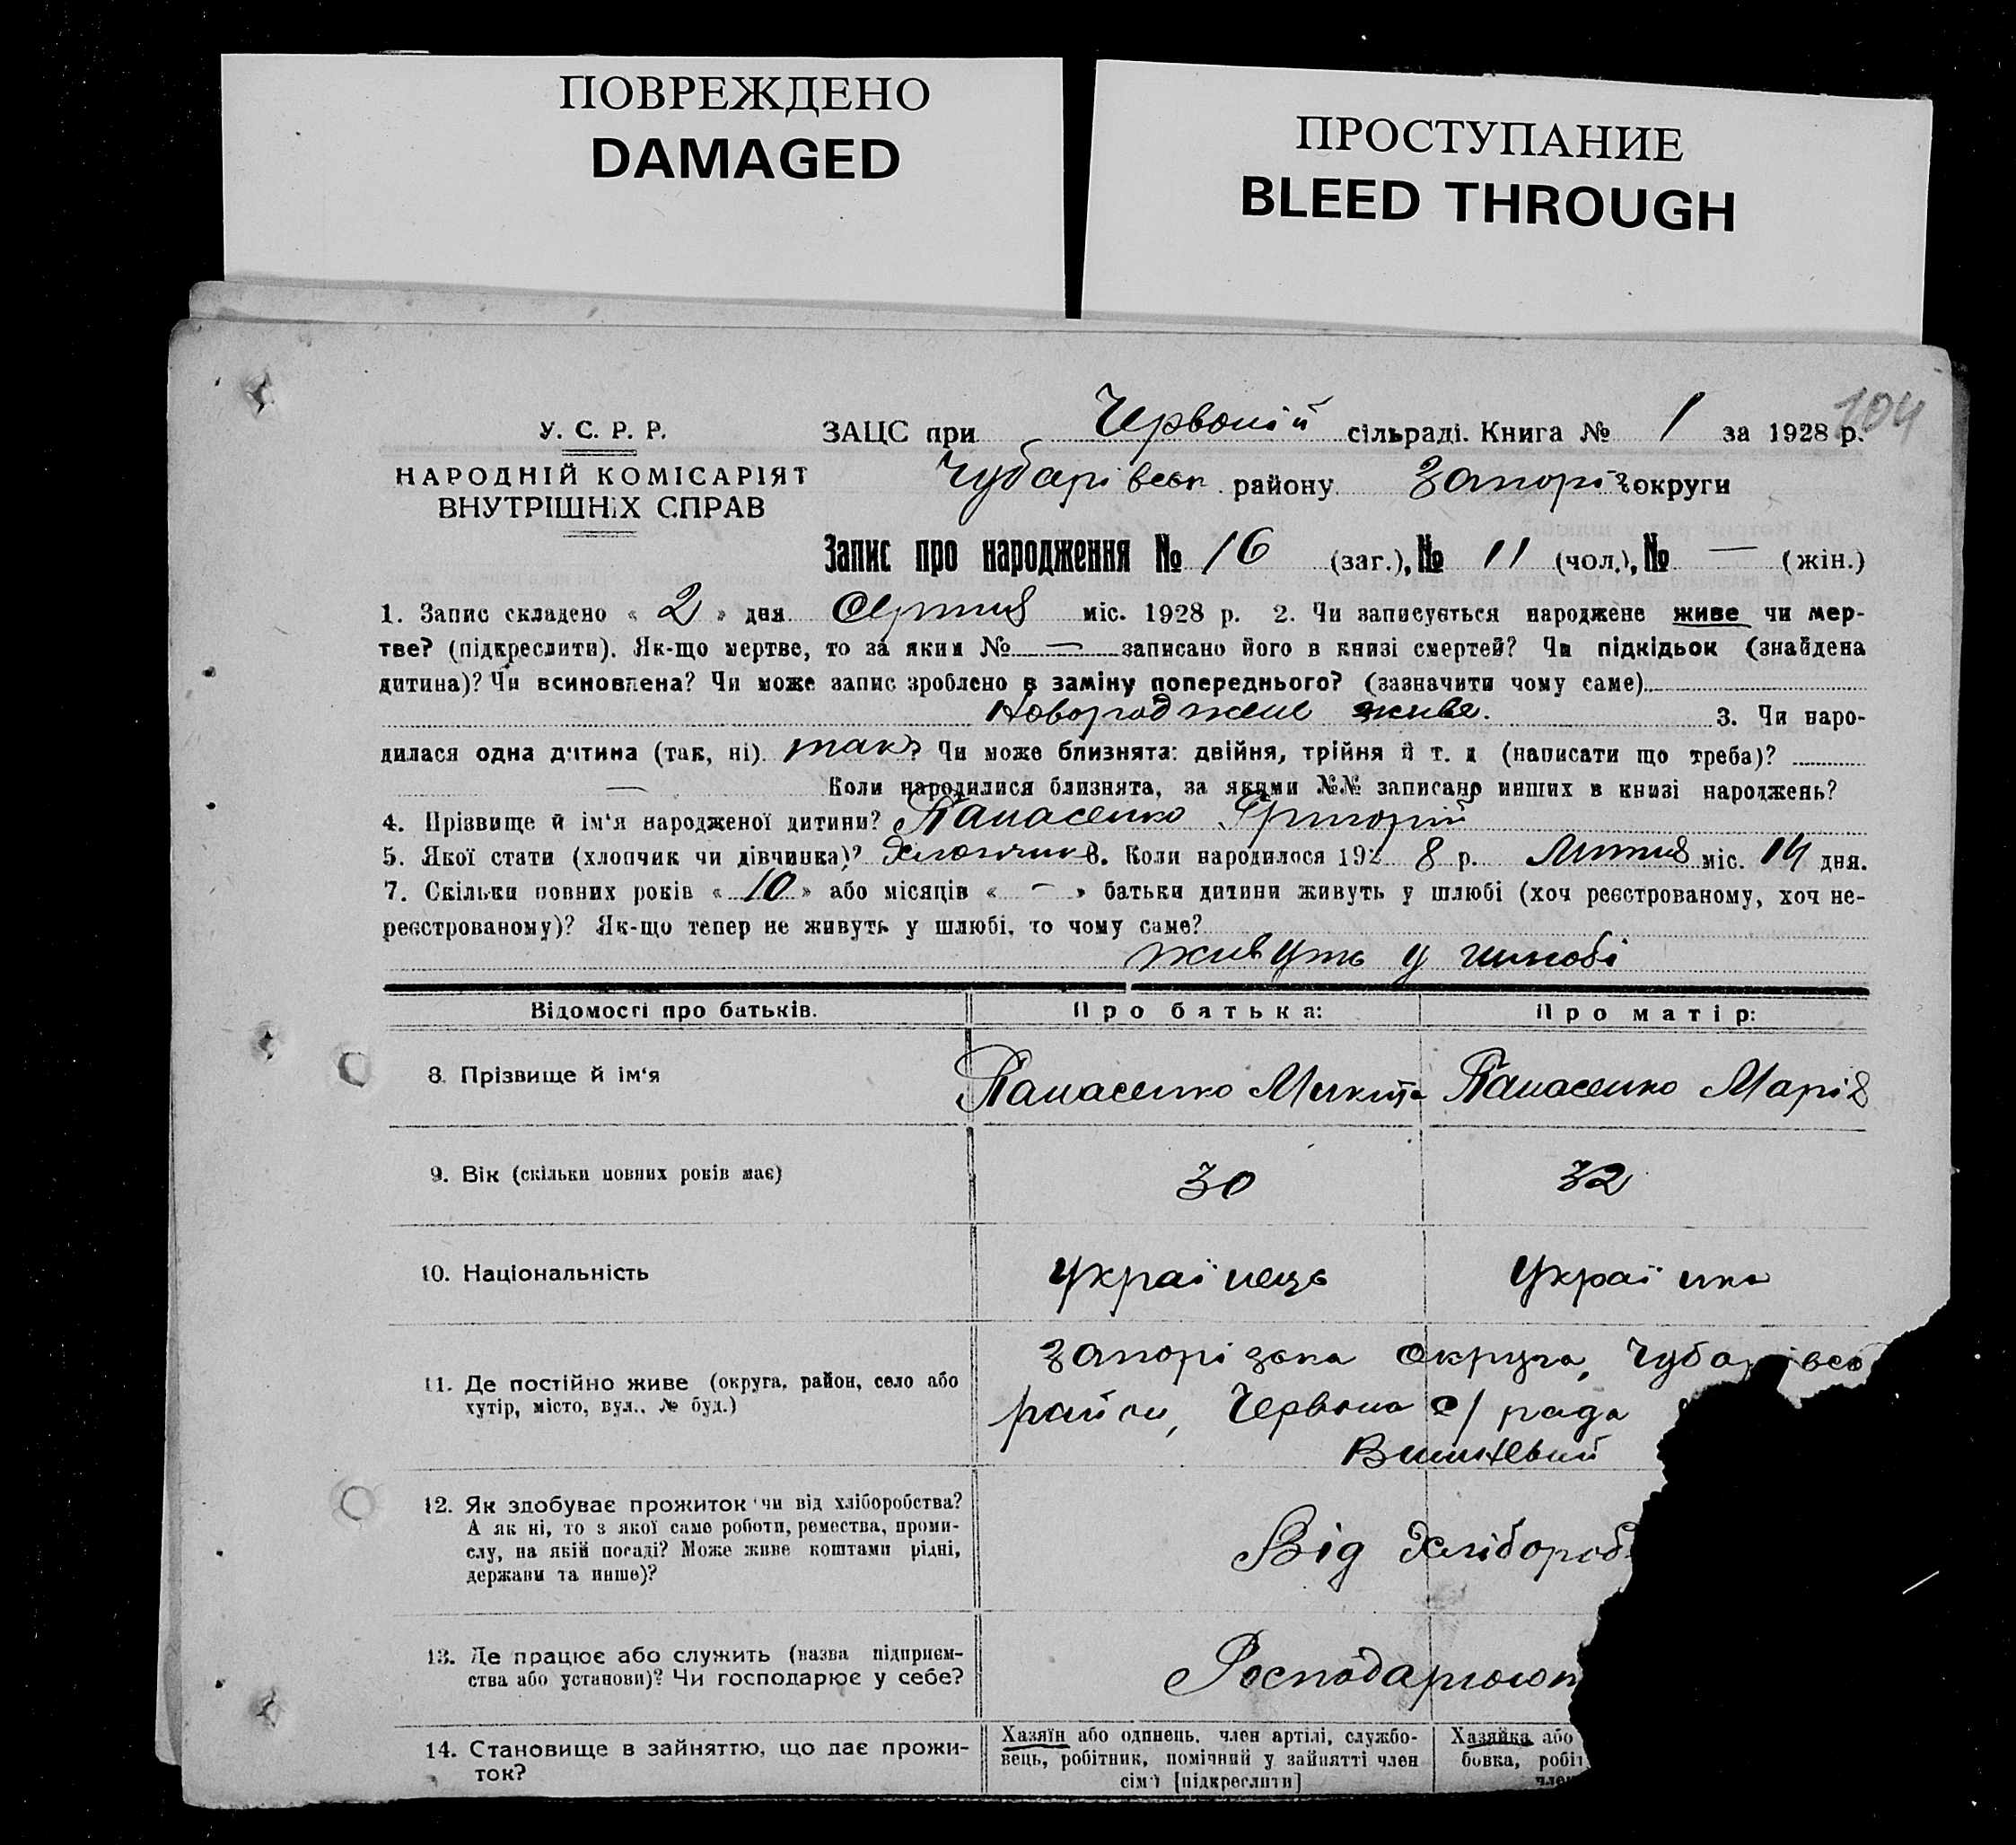 ПОВРЕЖДЕНО
DAMAGED
ПРОСТУПАНИЕ
BLEED THROUGH
104
У. С. Р. Р.
НАРОДНІЙ КОМІСАРІЯТ
ВНУТРІШНІХ СПРАВ
ЗАЦС при Червоній сільраді. Книга № 1 за 1928 р.
Чубарівськ району Запоріз округи
Запис про народження № 16 (заг.), № 11 (чол.), № — (жін.)
1. Запис складено « 2 » дня Серпня міс. 1928 р. 2. Чи записується народжене живе чи мер-
тве? (підкреслити). Як-що мертве, то за яким № — записано його в книзі смертей? Чи підкідьок (знайдена
дитина)? Чи всиновлена? Чи може запис зроблено в заміну попереднього? (зазначити чому саме)
Новороджене живе. 3. Чи наро-
дилася одна дитина (так, ні). так Чи може близнята: двійня, трійня й т. д (написати що треба)?
— Коли народилися близнята, за якими №№ записано инших в книзі народжень?
4. Прізвище й ім'я народженої дитини? Панасенко Григорій
5. Якої стати (хлопчик чи дівчинка)? Хлопчик 6. Коли народилося 192 8 р. Липня міс. 14 дня.
7. Скільки повних років « 10 » або місяців « — » батьки дитини живуть у шлюбі (хоч реєстрованому, хоч не-
реєстрованому)? Як-що тепер не живуть у шлюбі, то чому саме?
живуть у шлюбі
Відомості про батьків. Про батька: Про матір:
8. Прізвище й ім'я Панасенко Микита Панасенко Марія
9. Вік (скільки повних років має) 30 32
10. Національність Українець Українка
11. Де постійно живе (округа, район, село або
хутір, місто, вул., № буд.)
Запорізька округа, Чубарівсь
район, Червона с/рада
Вишневий
12. Як здобуває прожиток чи від хліборобства?
А як ні, то з якої саме роботи, ремества, проми-
слу, на якій посаді? Може живе коштами рідні,
держави та инше)?
Від хлібороб
13. Де працює або служить (назва підприєм-
ства або установи)? Чи господарює у себе?
Господарюют
14. Становище в зайняттю, що дає прожи-
ток?
Хазяїн або одинець, член артілі, службо-
вець, робітник, помічний у зайнятті член
сім'ї [підкреслити]
Хазяйка або
бовка, робіт
член